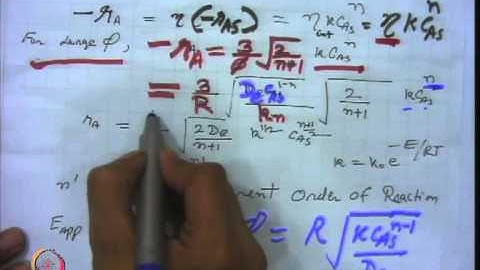 -r_A = η(-r_AS) = η_int k C_AS^n = η k C_AS^n
For large φ,
-r_A = 3/φ √(2/(n+1)) k C_AS^n
= 3/R √(De C_AS^(1-n)/kn) √(2/(n+1)) k C_AS^n
r_A = √(2De/(n+1)) k^(1/2) C_AS^((n+1)/2)
k = k₀e^(-E/RT)
n' Order of Reaction
E_app φ = R √(k C_AS^(n-1)/De)